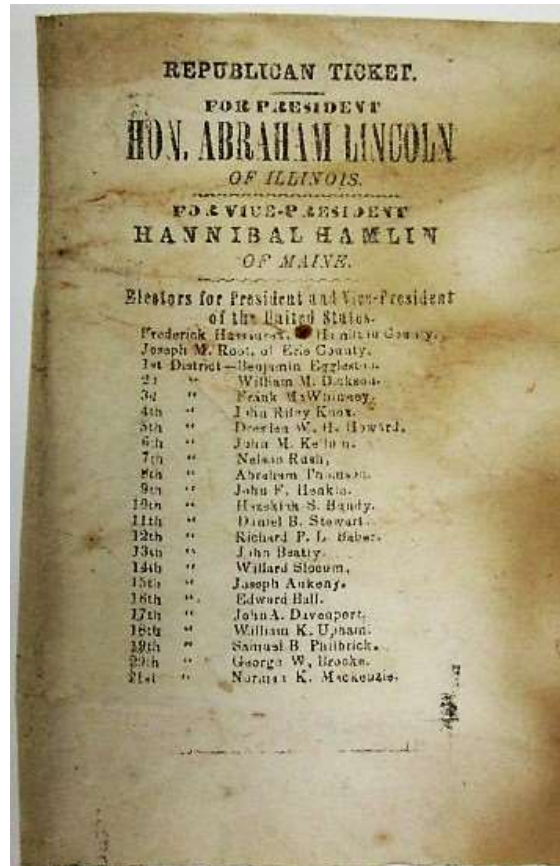 REPUBLICAN TICKET.
FOR PRESIDENT
HON. ABRAHAM LINCOLN
OF ILLINOIS.
FOR VICE-PRESIDENT
HANNIBAL HAMLIN
OF MAINE.
Electors for President and Vice-President
of the United States.
Frederick Hamilton County.
Joseph M. Root, of Erie County.
1st District—Benjamin Eggleston.
2d " William M. Dickson.
3d " Frank McWhinney.
4th " John Riley Knox.
5th " Dresden W. H. Howard.
6th " John M. Kellum.
7th " Nelson Rush,
8th " Abraham Thomson.
9th " John F. Henkle.
10th " Hezekiah S. Bundy.
11th " Daniel B. Stewart.
12th " Richard P. L. Baber.
13th " John Beatty.
14th " Willard Slocum,
15th " Joseph Ankeny.
16th " Edward Ball.
17th " John A. Davenport.
18th " William K. Upham.
19th " Samuel B. Philbrick.
20th " George W, Brooke.
21st " Norman K. Mackenzie.